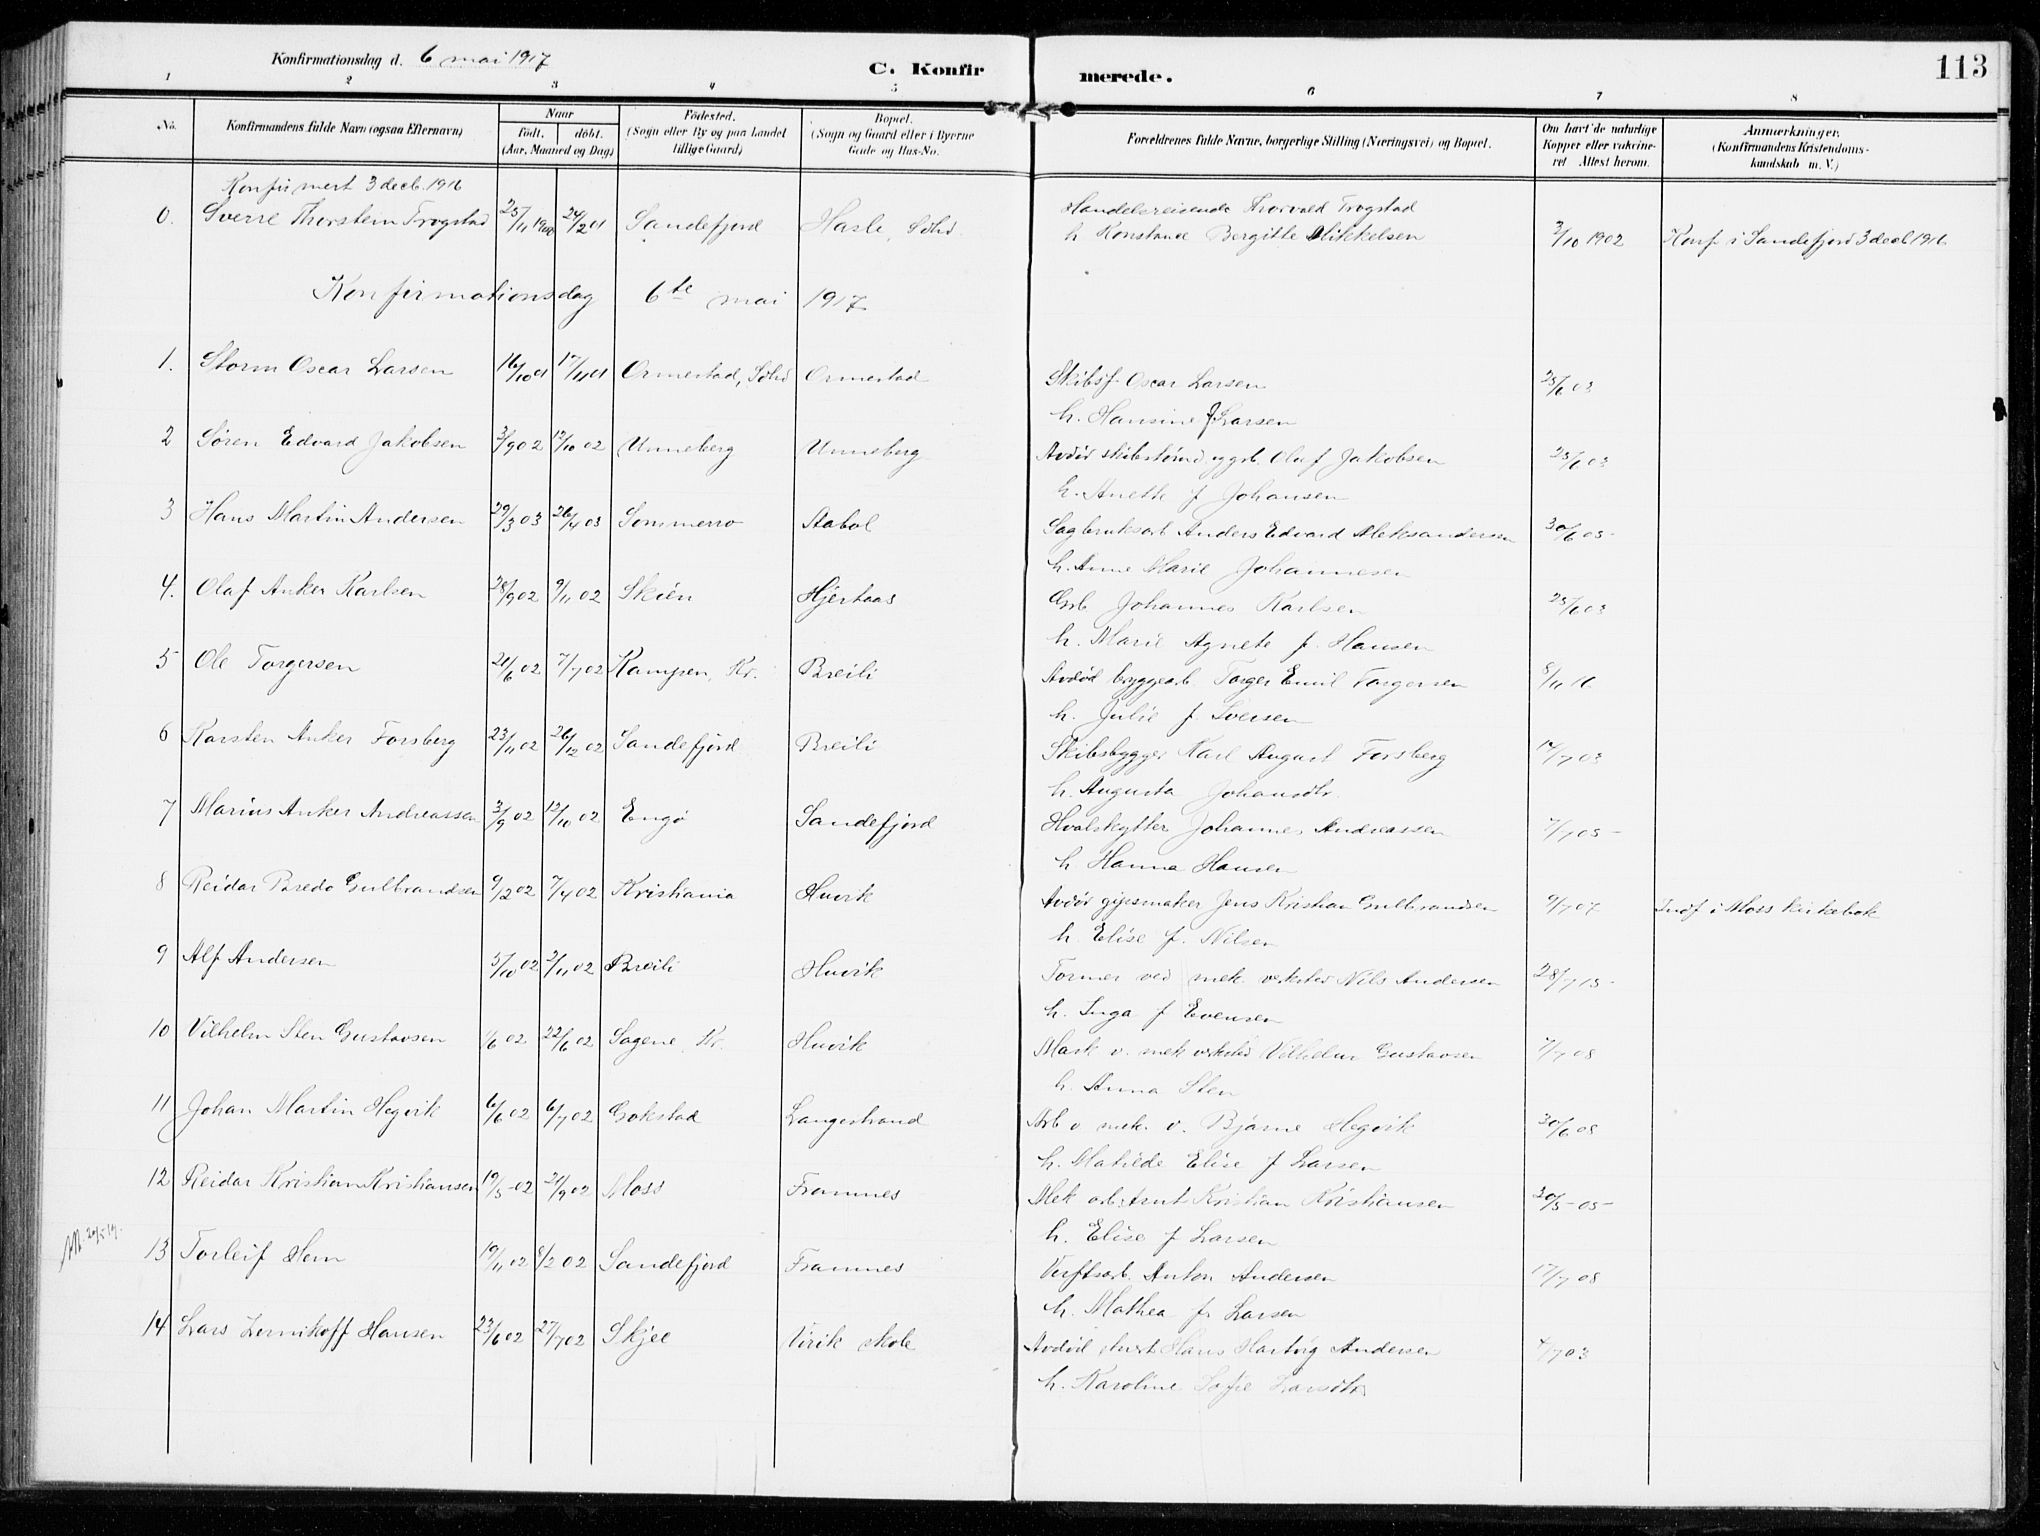 Konfirmationsdag d. 6 mai 1917
C. Konfirmerede.
113
1 2 3 4 5 6 7 8
No. Konfirmandens fulde Navn (ogsaa Efternavn) Naar födt. döbt. (Aar, Maaned og Dag) Födested. (Sogn eller By og paa Landet tillige Gaard) Bopæl. (Sogn og Gaard eller i Byerne Gade og Hus-No. Forældrenes fulde Navne, borgerlige Stilling (Næringsvei) og Bopæl. Om havt de naturlige Kopper eller vakcineret Attest herom. Anmærkninger. (Konfirmandens Kristendomskundskab m. V.)
Konfirmert 3 decb. 1916
0. Sverre Thorstein Trogstad 25/11 1900 24/2 01 Sandefjord Hasle, Søhd Handelsreisende Thorvald Trogstad
h Konstance Bergitte Mikkelsen 3/10 1902 Konf i Sandefjord 3 decb 1916
Konfirmationsdag 6te mai 1917
1. Storm Oscar Larsen 16/10 01 17/11 01 Ormestad, Søhd Ormestad Skibsf. Oscar Larsen 25/6 03
h. Hansine f Larsen
2 Søren Edvard Jakobsen 3/9 02 12/10 02 Unneberg Unneberg Avdød skibstømd og grb. Olaf Jakobsen 25/6 03
h. Anette f Johansen
3 Hans Martin Andersen 29/3 03 26/4 03 Sommerro Aabol Sagbruksarb Anders Edvard Aleksandersen 30/6 05
h. Anne Marie Johannesen
4. Olaf Anker Karlsen 28/9 02 9/11 02 Skien Hjertaas Grb Johannes Karlsen 25/6 03
h. Marie Agnete f. Hansen
5 Ole Torgersen 21/6 02 7/7 02 Kampen, Kr. Breili Avdød bryggearb. Torger Emil Torgersen 8/11 16
h. Julie f Iversen
6 Karsten Anker Forsberg 23/11 02 26/12 02 Sandefjord Breili Skibsbygger Karl August Forsberg 14/7 03
h. Augusta Johansdtr.
7 Marius Anker Andreassen 3/9 02 12/10 02 Engø Sandefjord Hvalskytter Johannes Andreassen 7/7 05
h Hanna Hansen
8 Reidar Bredo Gulbrandsen 9/12 02 7/4 02 Kristiania Huvik Avdød gipsmaker Jens Kristian Gulbrandsen 9/7 07 Indf i Moss kirkebok
h. Elise f. Nilsen
9 Alf Andersen 5/10 02 2/11 02 Breili Huvik Former ved mek. verksted Nils Andersen 28/7 15
h. Inga f Evensen
10 Vilhelm Sten Gustavsen 1/6 02 22/6 02 Sagene, Kr. Huvik Mask v. mek verksted Vilhelm Gustavsen 7/7 08
h. Anna Sten
11 Johan Martin Hegvik 6/6 02 6/7 02 Gokstad Langestrand Arb v mek. v. Bjarne Hegvik 30/6 08
h. Matilde Elise f Larsen
12 Reidar Kristian Kristiansen 19/5 02 21/9 02 Moss Framnes Mek arb. Arnt Kristian Kristiansen 30/5 05
h. Elise f Larsen
20/5 19.
13 Torleif Hem 19/11 02 8/2 02 Sandefjord Framnes Verftsarb. Anton Andersen 17/7 08
h. Mathea f. Larsen
14 Lars Lernikoff Hansen 23/6 02 27/7 02 Skjee Virik skole Avdød Hans Hartvig Andersen 4/7 03
h. Karoline Sofie Larsdtr